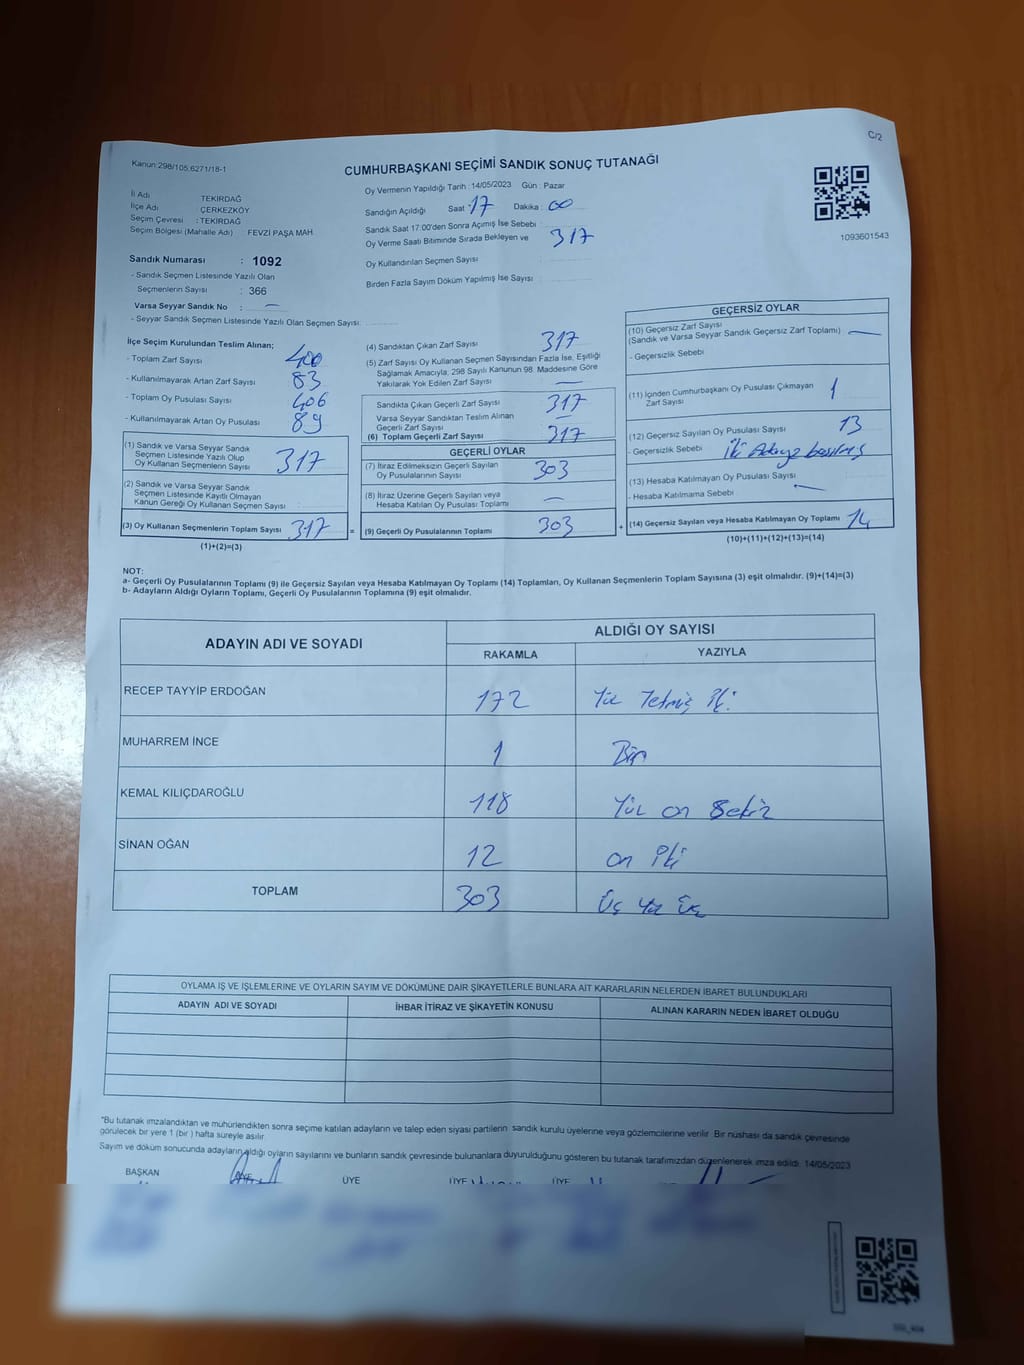 C/2
Kanun:298/105,6271/18-1
CUMHURBAŞKANI SEÇİMİ SANDIK SONUÇ TUTANAĞI
İl Adı TEKİRDAĞ
İlçe Adı ÇERKEZKÖY
Seçim Çevresi : TEKİRDAĞ
Seçim Bölgesi (Mahalle Adı) FEVZİ PAŞA MAH.
Sandık Numarası : 1092
- Sandık Seçmen Listesinde Yazılı Olan
Seçmenlerin Sayısı : 366
Varsa Seyyar Sandık No : —
- Seyyar Sandık Seçmen Listesinde Yazılı Olan Seçmen Sayısı:
Oy Vermenin Yapıldığı Tarih : 14/05/2023 Gün : Pazar
Sandığın Açıldığı Saat : 17 Dakika : 00
Sandık Saat 17:00'den Sonra Açımış İse Sebebi :
Oy Verme Saati Bitiminde Sırada Bekleyen ve 317
Oy Kullandırılan Seçmen Sayısı
Birden Fazla Sayım Döküm Yapılmış İse Sayısı :
1093601543
İlçe Seçim Kurulundan Teslim Alınan;
- Toplam Zarf Sayısı 400
- Kullanılmayarak Artan Zarf Sayısı 83
- Toplam Oy Pusulası Sayısı 406
- Kullanılmayarak Artan Oy Pusulası 89
(1) Sandık ve Varsa Seyyar Sandık
Seçmen Listesinde Yazılı Olup
Oy Kullanan Seçmenlerin Sayısı 317
(2) Sandık ve Varsa Seyyar Sandık
Seçmen Listesinde Kayıtlı Olmayan
Kanun Gereği Oy Kullanan Seçmenlerin Sayısı :
(3) Oy Kullanan Seçmenlerin Toplam Sayısı 317 =
(1)+(2)=(3)
(4) Sandıktan Çıkan Zarf Sayısı 317
(5) Zarf Sayısı Oy Kullanan Seçmen Sayısından Fazla İse, Eşitliği
Sağlamak Amacıyla, 298 Sayılı Kanunun 98. Maddesine Göre
Yakılarak Yok Edilen Zarf Sayısı —
Sandıkta Çıkan Geçerli Zarf Sayısı 317
Varsa Seyyar Sandıktan Teslim Alınan
Geçerli Zarf Sayısı —
(6) Toplam Geçerli Zarf Sayısı 317
GEÇERLİ OYLAR
(7) İtiraz Edilmeksizin Geçerli Sayılan
Oy Pusulalarının Sayısı 303
(8) İtiraz Üzerine Geçerli Sayılan veya
Hesaba Katılan Oy Pusulası Toplamı —
(9) Geçerli Oy Pusulalarının Toplamı 303 +
GEÇERSİZ OYLAR
(10) Geçersiz Zarf Sayısı
(Sandık ve Varsa Seyyar Sandık Geçersiz Zarf Toplamı) —
- Geçersizlik Sebebi
(11) İçinden Cumhurbaşkanı Oy Pusulası Çıkmayan
Zarf Sayısı 1
(12) Geçersiz Sayılan Oy Pusulası Sayısı 13
- Geçersizlik Sebebi İki Adaya basılmış
(13) Hesaba Katılmayan Oy Pusulası Sayısı —
- Hesaba Katılmama Sebebi
(14) Geçersiz Sayılan veya Hesaba Katılmayan Oy Toplamı 14
(10)+(11)+(12)+(13)=(14)
NOT:
a- Geçerli Oy Pusulalarının Toplamı (9) ile Geçersiz Sayılan veya Hesaba Katılmayan Oy Toplamı (14) Toplamları, Oy Kullanan Seçmenlerin Toplam Sayısına (3) eşit olmalıdır. (9)+(14)=(3)
b- Adayların Aldığı Oyların Toplamı, Geçerli Oy Pusulalarının Toplamına (9) eşit olmalıdır.
ADAYIN ADI VE SOYADI ALDIĞI OY SAYISI
RAKAMLA YAZIYLA
RECEP TAYYİP ERDOĞAN 172 Yüz Yetmiş İki
MUHARREM İNCE 1 Bir
KEMAL KILIÇDAROĞLU 118 Yüz on Sekiz
SİNAN OĞAN 12 on iki
TOPLAM 303 Üç Yüz Üç
OYLAMA İŞ VE İŞLEMLERİNE VE OYLARIN SAYIM VE DÖKÜMÜNE DAİR ŞİKAYETLERLE BUNLARA AİT KARARLARIN NELERDEN İBARET BULUNDUKLARI
ADAYIN ADI VE SOYADI İHBAR İTİRAZ VE ŞİKAYETİN KONUSU ALINAN KARARIN NEDEN İBARET OLDUĞU
*Bu tutanak imzalandıktan ve mühürlendikten sonra seçime katılan adayların ve talep eden siyasi partilerin sandık kurulu üyelerine veya gözlemcilerine verilir. Bir nüshası da sandık çevresinde
görülecek bir yere 1 (bir) hafta süreyle asılır.
Sayım ve döküm sonucunda adayların aldığı oyların sayılarını ve bunların sandık çevresinde bulunanlara duyurulduğunu gösteren bu tutanak tarafımızdan düzenlenerek imza edildi. 14/05/2023
BAŞKAN ÜYE ÜYE ÜYE